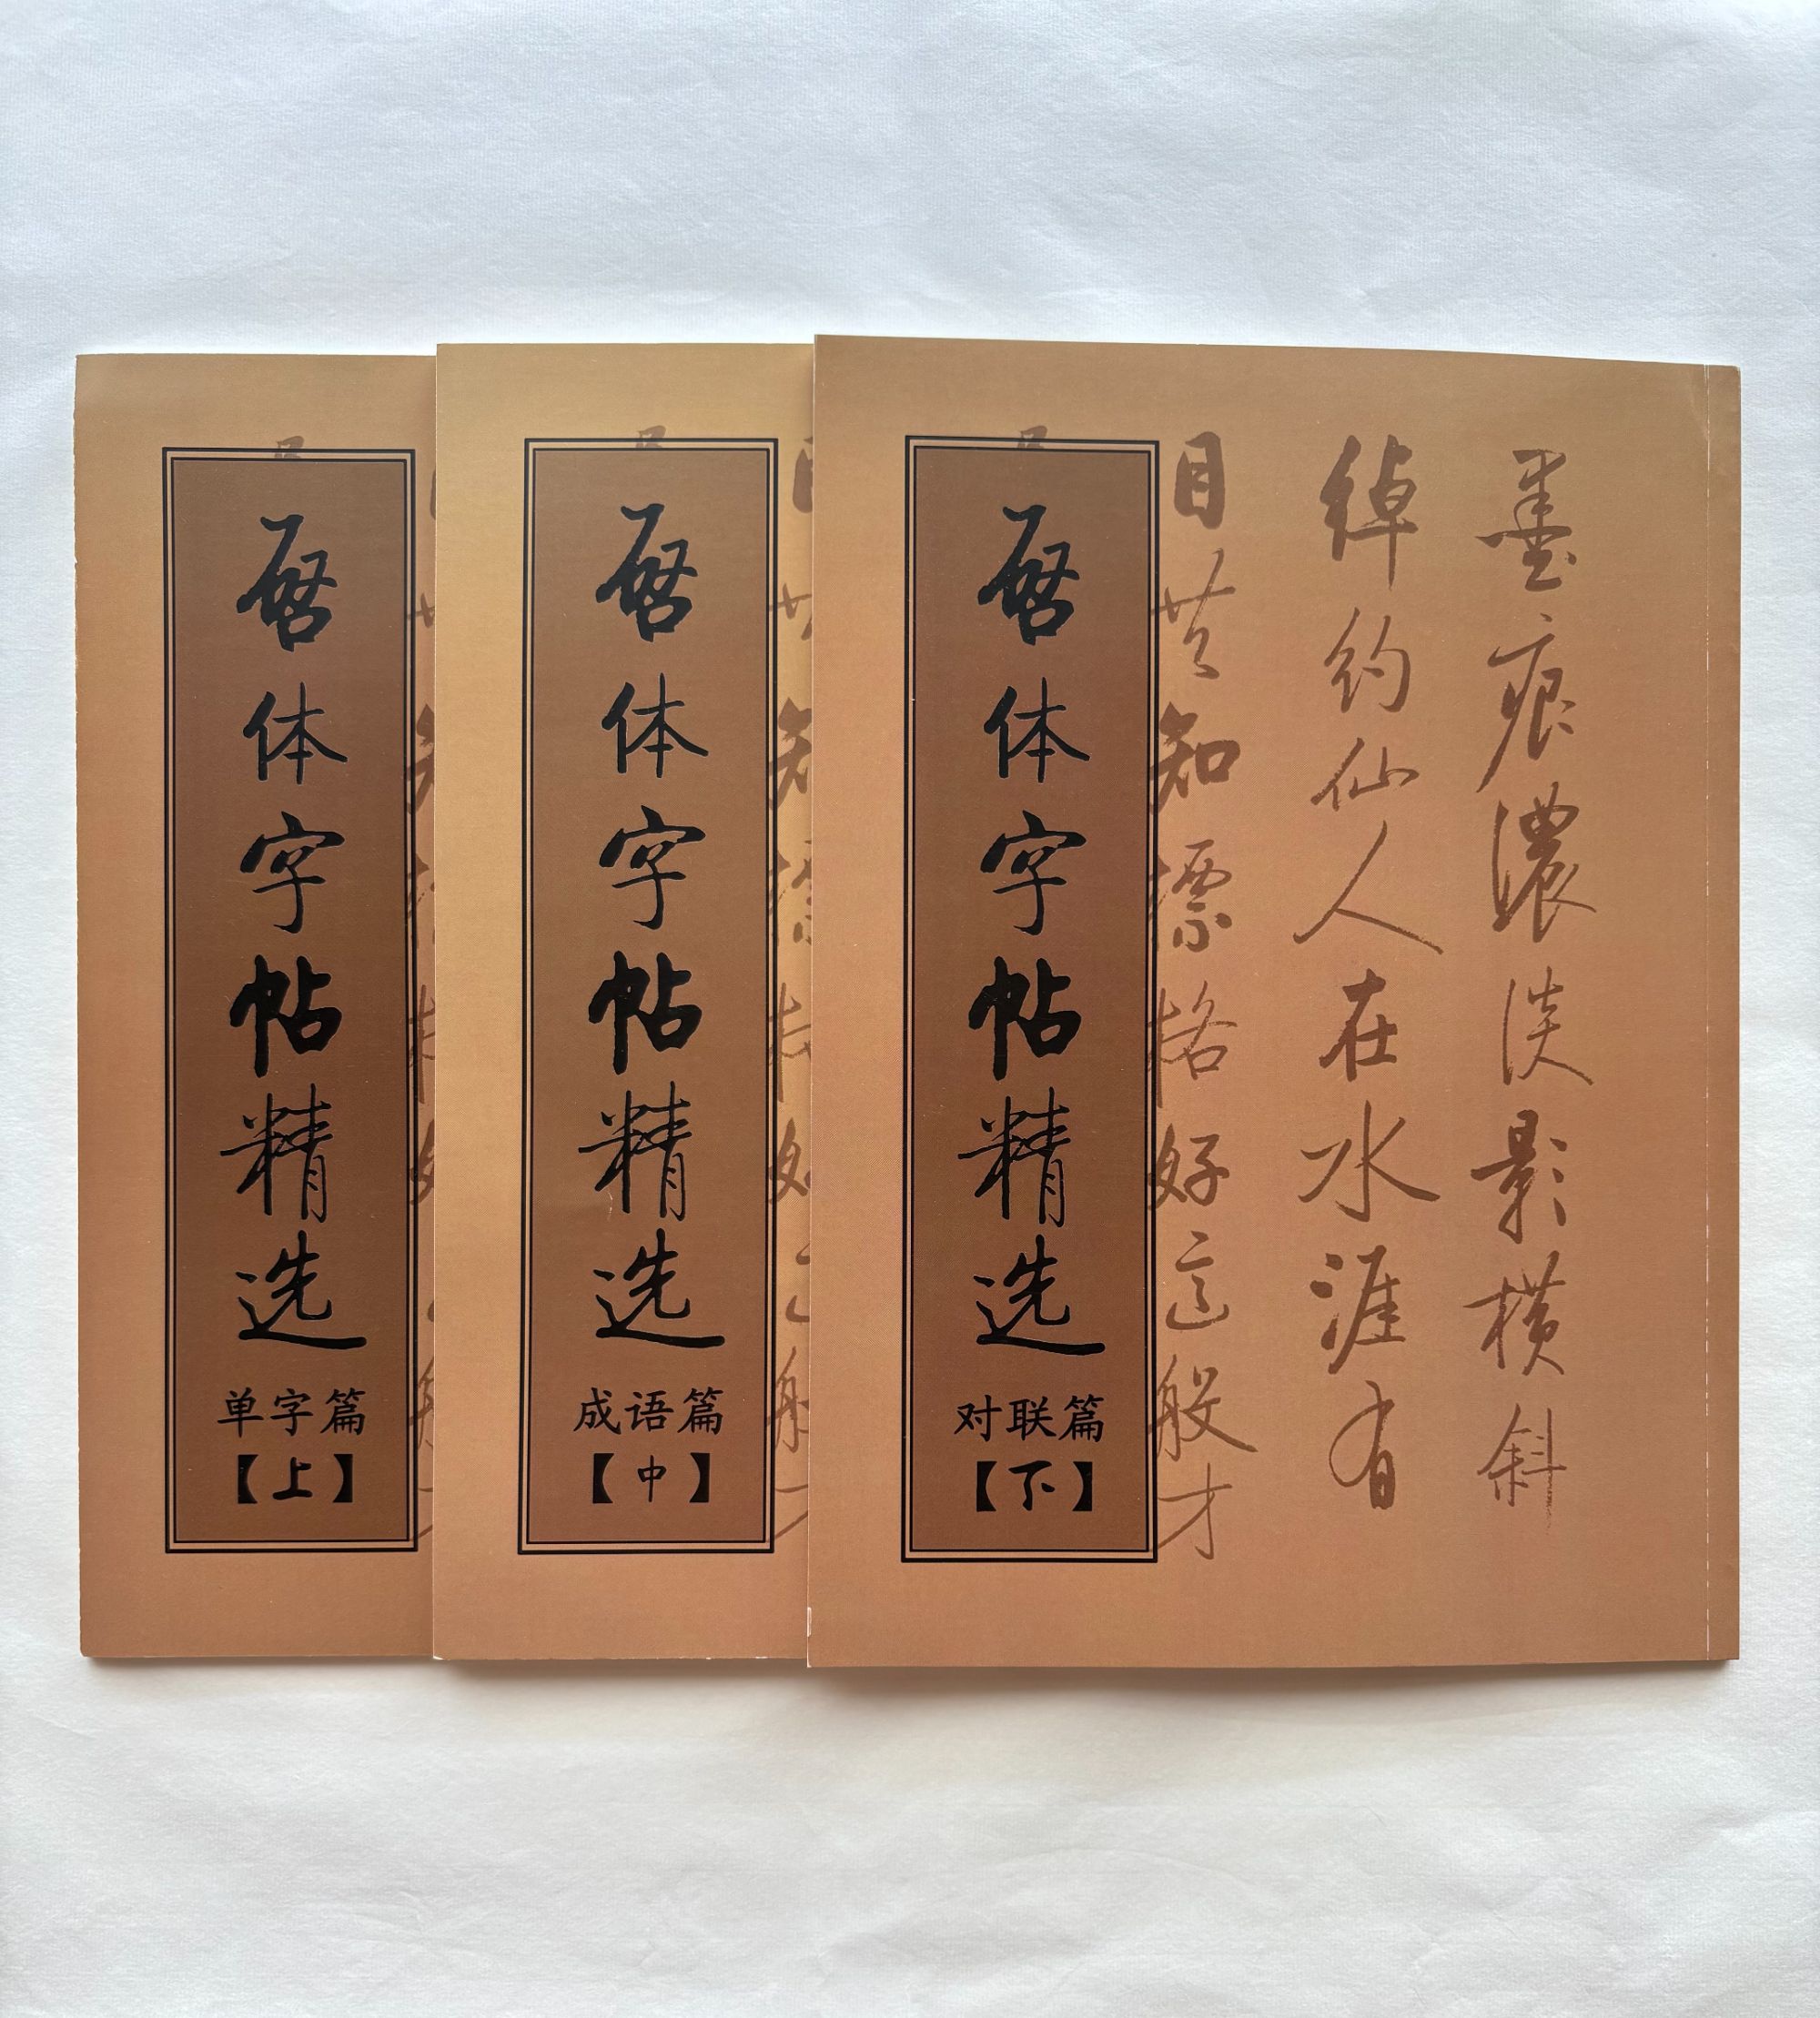 啓体字帖精选
单字篇
【上】
啓体字帖精选
成语篇
【中】
啓体字帖精选
对联篇
【下】
墨痕濃淡影横斜
綽約仙人在水涯有
目共知標格好這般才